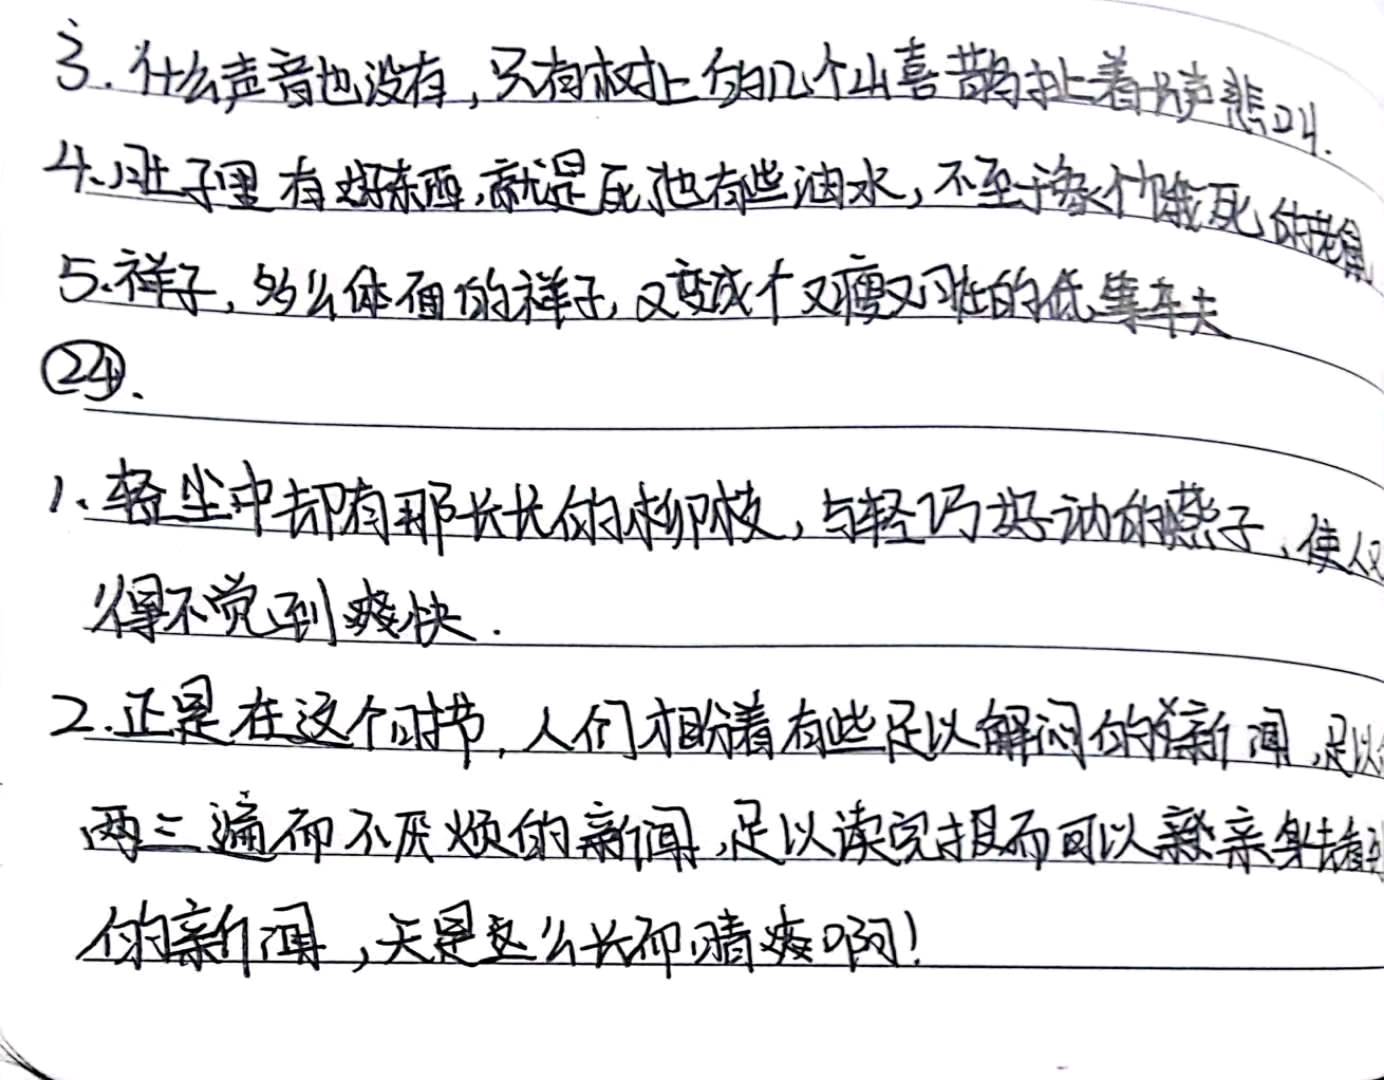 3.什么声音也没有,只有树上的几个山喜鹊扯着长声悲叫.
4.肚子里有好东西,就是死也有些油水,不至于像个饿死的老鼠
5.祥子,多么体面的祥子,又变成个又瘦又脏的低等车夫
㉔.
1、轻尘中却有那长长的柳枝,与轻巧好动的燕子,使人又
得不觉到爽快.
2.正是在这个时节,人们才盼着有些足以解闷的新闻,足以
两三遍而不厌烦的新闻,足以读完报而可以亲身去看
的新闻,天是这么长而晴爽啊!